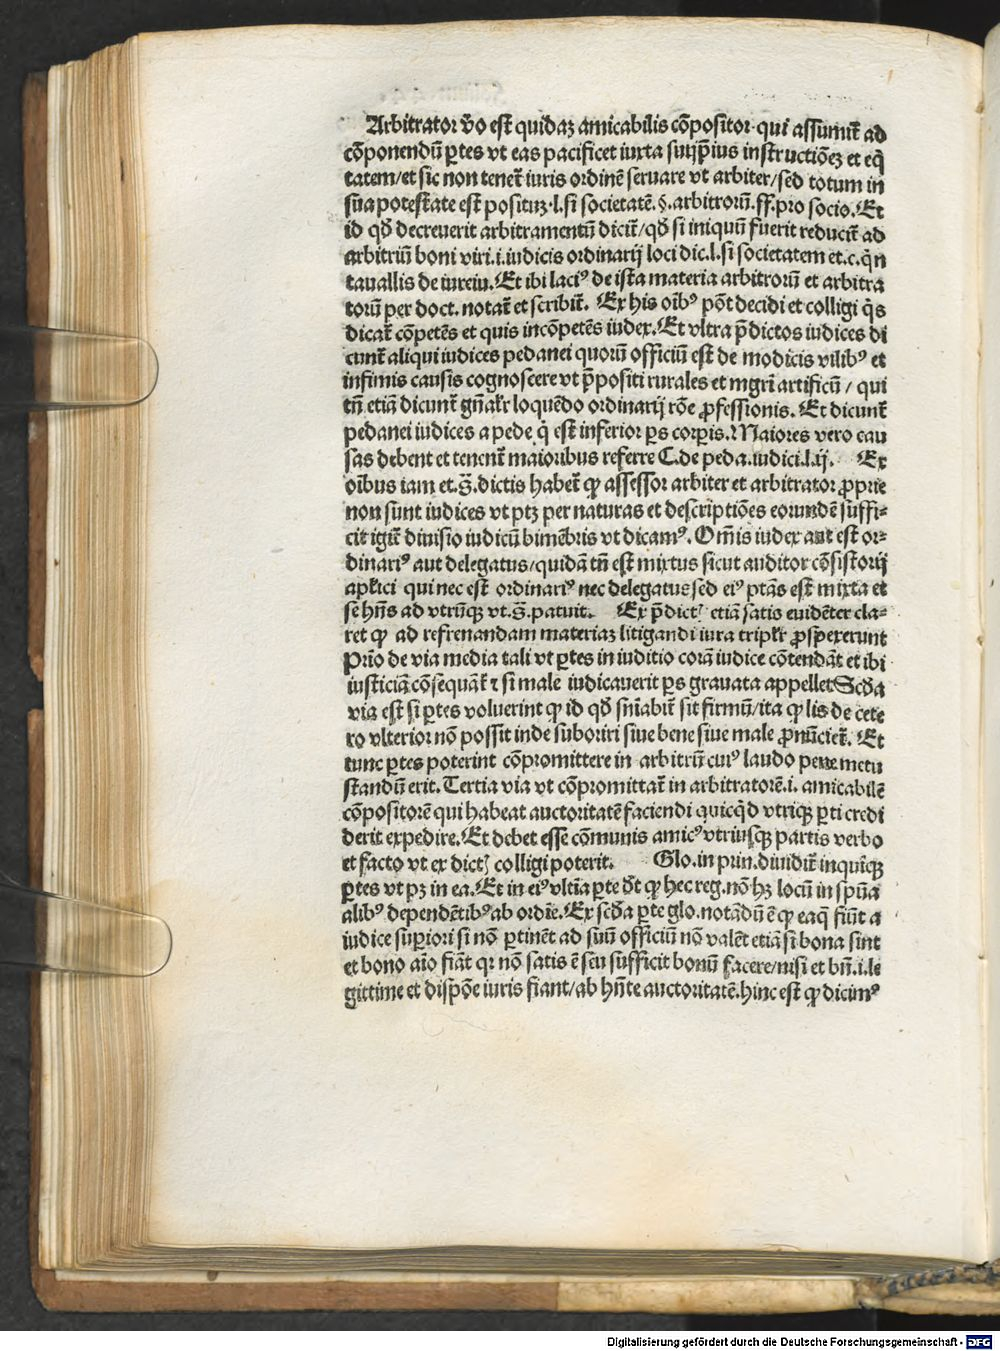 Arbitrator ṽo est quidaꝫ amicabilis cõpositor·qui assumit̃ ad
cõponendũ ꝑtes vt eas pacificet iuxta suijp̃ius instructiõeꝫ et eq̃
tatem/et sic non tenet̃ iuris ordinẽ seruare vt arbiter/sed totum in
sũa potestate est posituꝫ·l.si societatẽ.§.arbitrorũ.ff.pro socio.Et
id qd̃ decreuerit arbitramentũ dicit̃/qd̃ si iniquũ fuerit reducit̃ ad
arbitriũ boni viri.i.iudicis ordinarij loci dic.l.si societatem et.c.q̃n
tauallis de iureiu.Et ibi laciꝰ de ista materia arbitrorũ et arbitra
torũ per doct.notat̃ et scribit̃. Ex his oĩbꝰ põt decidi et colligi q̃s
dicat̃ cõpetẽs et quis incõpetẽs iudex.Et vltra p̃dictos iudices di
cunt̃ aliqui iudices pedanei quorũ officiũ est de modicis vilibꝰ et
infimis causis cognoscere vt p̃positi rurales et mgr̃i artificũ / qui
tñ etiã dicunt̃ gñalr̃ loquẽdo ordinarij rõe ꝓfessionis. Et dicunt̃
pedanei iudices a pede q̃ est inferior ꝑs corꝑis.Maiores vero cau
sas debent et tenent̃ maioribus referre C.de peda.iudici.l.ij. Ex
oĩbus iam et.s̃.dictis habet̃ ꝙ assessor arbiter et arbitrator ꝓprie
non sunt iudices vt ptꝫ per naturas et descriptiões eorundẽ suffi-
cit igit̃ diuisio iudicũ bimẽbris vt dicamꝰ. Om̃is iudex aut est or-
dinariꝰ aut delegatus/quidã tñ est mixtus sicut auditor cõsistorij
apl̃ici qui nec est ordinariꝰ nec delegatus sed eiꝰ ptãs est mixta et
se hñs ad vtrũqꝫ vt.s̃.patuit. Ex p̃dictꝭ etiã satis euidẽter cla-
ret ꝙ ad refrenandam materiaꝫ litigandi iura tripl̃r ꝓspexerunt
Prĩo de via media tali vt ꝑtes in iuditio corã iudice cõtendãt et ibi
iusticiã cõsequãt̃ ⁊ si male iudicauerit ꝑs grauata appellet Scd̃a
via est si ꝑtes voluerint ꝙ id qd̃ sñiabit̃ sit firmũ/ita ꝙ lis de cete
ro vlterior nõ possit inde suboriri siue bene siue male ꝓnũciet̃. Et
tunc ꝑtes poterint cõpromittere in arbitrũ cuiꝰ laudo pene metu
standũ erit.Tertia via vt cõpromittat̃ in arbitratorẽ.i.amicabilẽ
cõpositorẽ qui habeat auctoritatẽ faciendi quicq̃d vtriqꝫ ꝑti credi
derit expedire.Et debet esse cõmunis amicꝰ vtriusqꝫ partis verbo
et facto vt ex dictꝭ colligi poterit. Glo.in prin.diuidit̃ in quĩqꝫ
ꝑtes vt pꝫ in ea.Et in eiꝰ vltĩa ꝑte dt̃ ꝙ hec reg.nõ hꝫ locũ in spũa
alibꝰ dependẽtibꝰ ab ordĩe.Ex scd̃a ꝑte glo.notãdũ ẽ ꝙ ea q̃ fiũt a
iudice suꝑiori si nõ ꝑtinẽt ad suũ officiũ nõ valẽt etiã si bona sint
et bono aĩo fiãt qr nõ satis ẽ seu sufficit bonũ facere/nisi et bñ.i.le
gittime et dispõe iuris fiant/ab hñte auctoritatẽ.hinc est ꝙ dicimꝰ
Digitalisierung gefördert durch die Deutsche Forschungsgemeinschaft - DFG